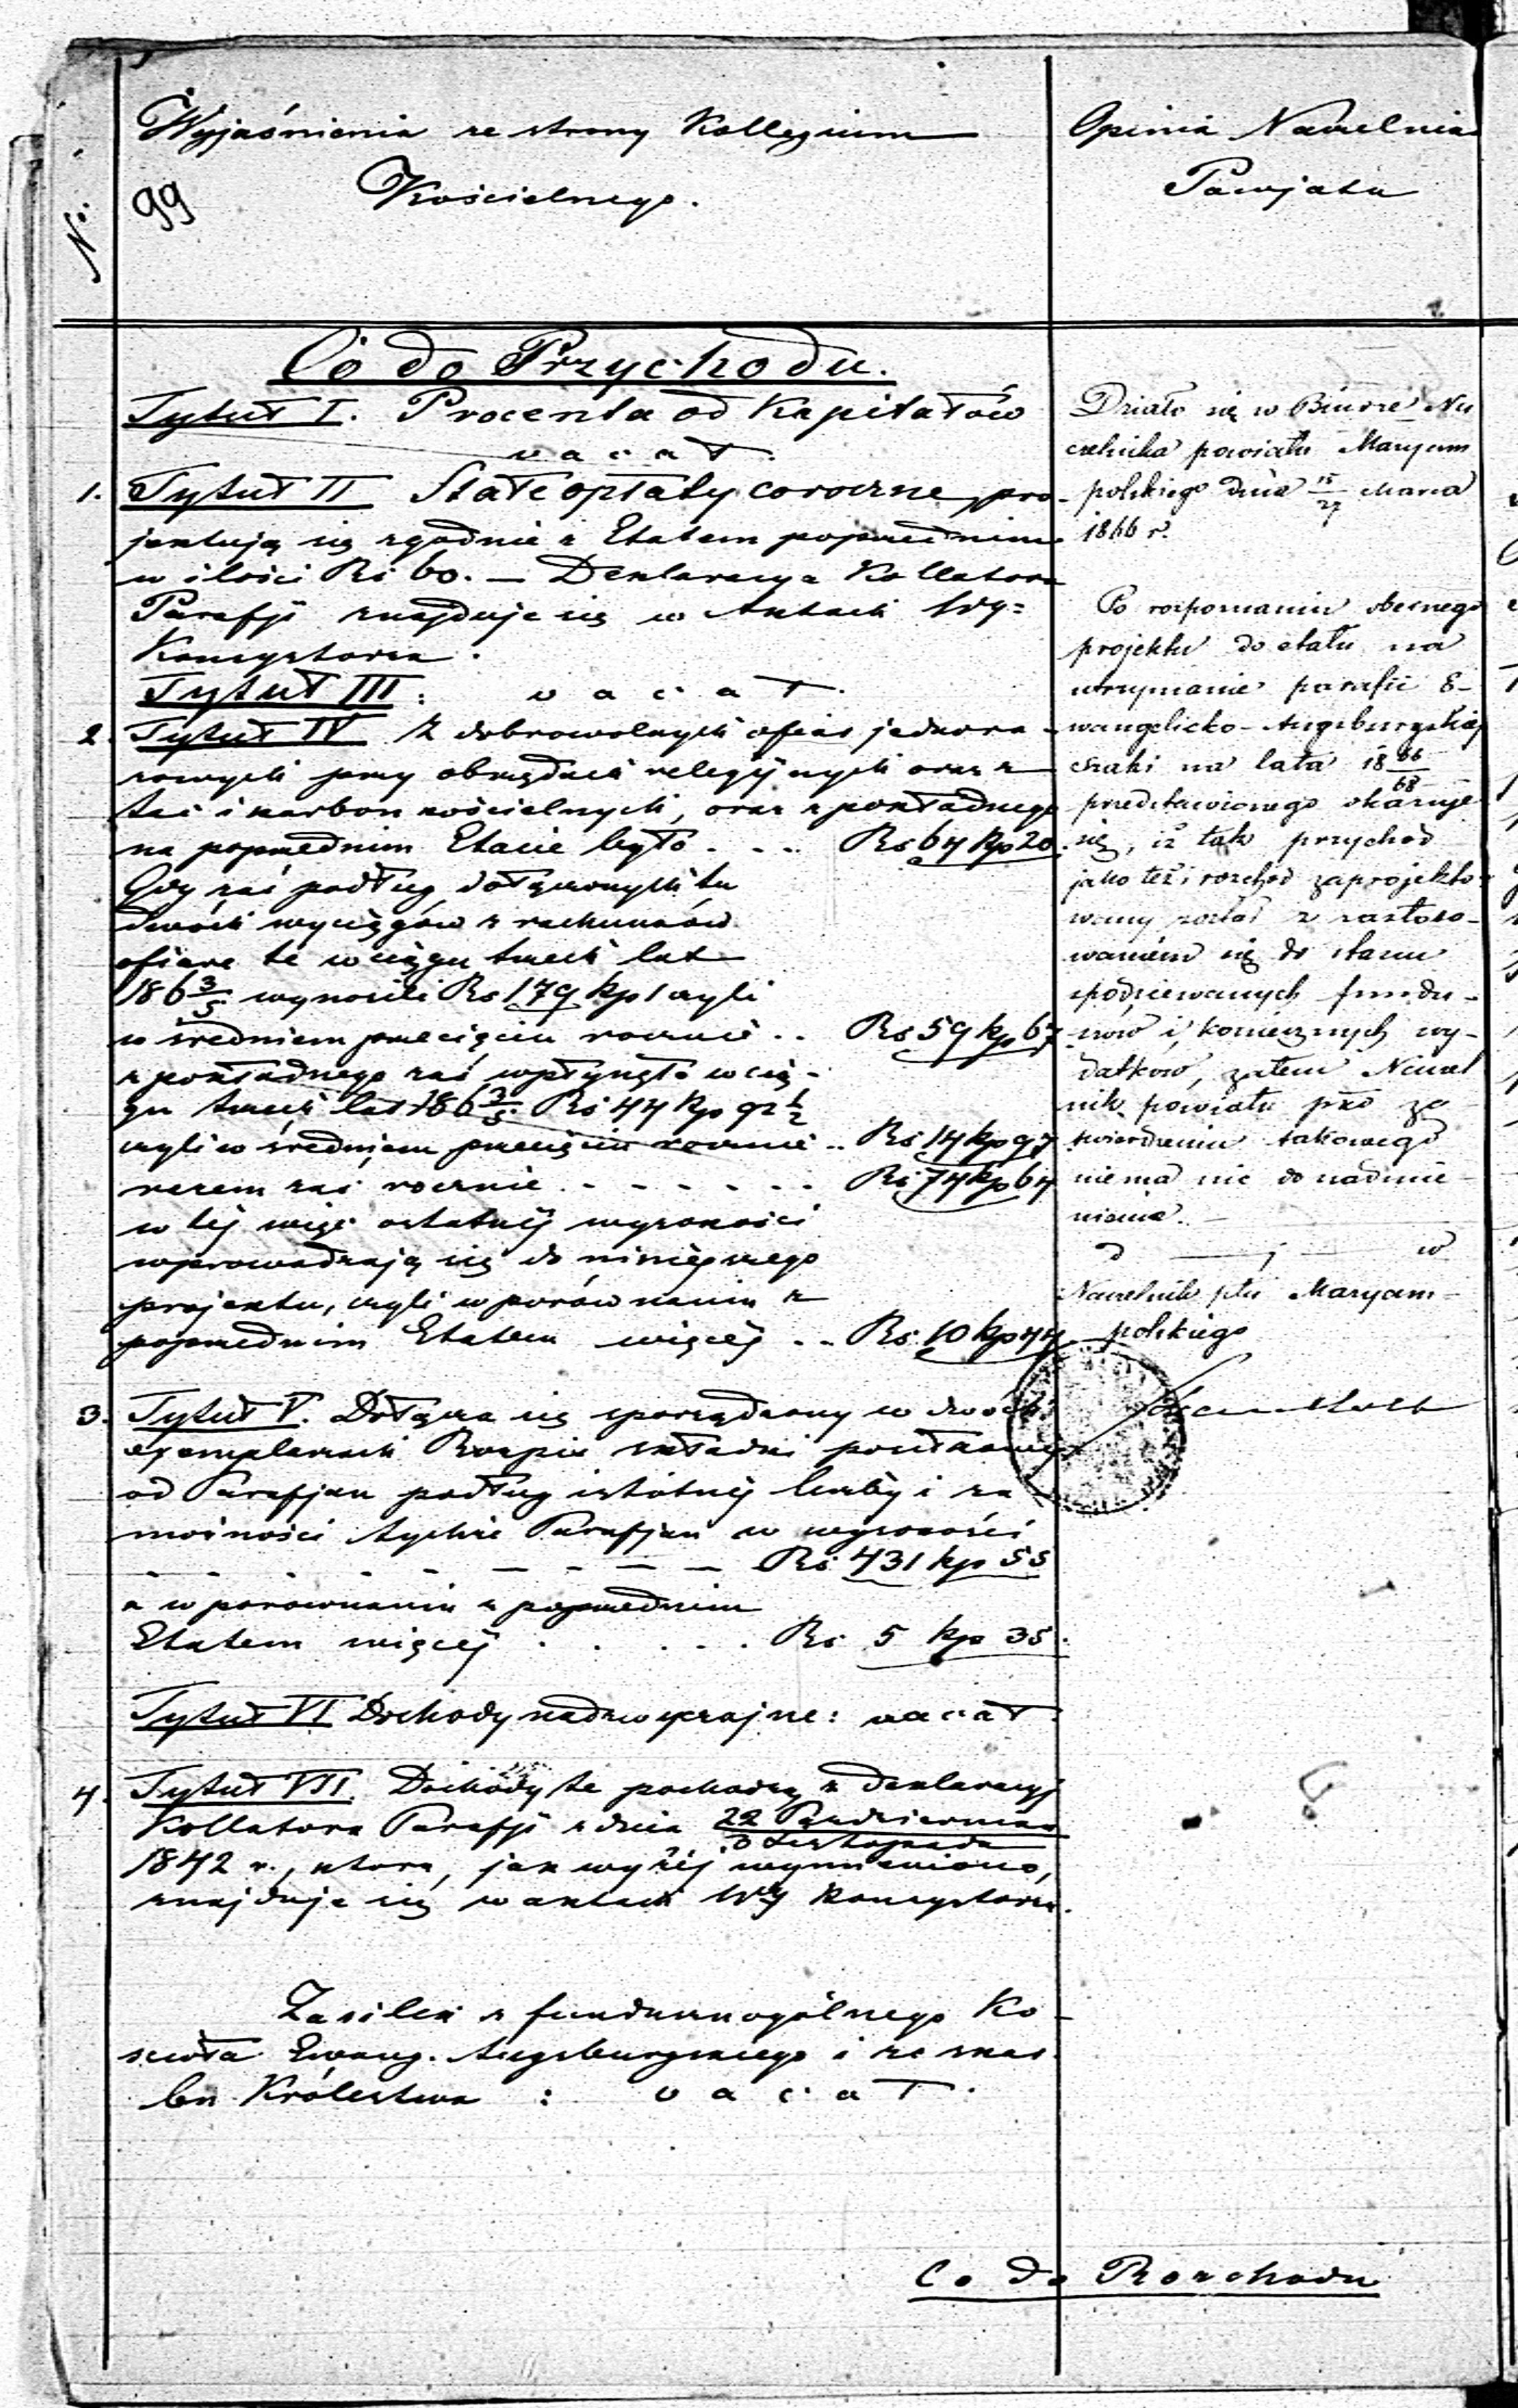 No.
99
Wyjaśnienia ze strony Kollegium
Kościelnego.
Opinia Naczelnika
Powjatu
Co do Przychodu.
Tytuł I. Procenta od Kapitałów
vacat.
1. Tytuł II Stałe opłaty coroczne, pro-
jektują się zgodnie z Etatem poprzednim
w ilości Rs 60. — Deklaracya Kollatora
Parafji znajduje się w Aktach Wy=
Konsystorza.
Tytuł III: vacat.
2. Tytuł IV Z dobrowolnych ofiar jednora-
zowych przy obrzędach religijnych oraz z
tac i karbon kościelnych, oraz z pokładnego
na poprzednim Etacie było . . . Rs 64 kp 20.
Gdy zaś podług dołączonych tu
dwóch wyciągów z rachunków
ofiare te w ciągu trzech lat
186 3/5 wynosili Rs 179 kp 1 czyli
w średniem przecięciu rocznie . . Rs 59 kp 67
z pokładnego zaś wpłynęło w cią-
gu trzech lat 186 3/5 Rs 44 kp 92 1/2
czyli w średniem przecięciu rocznie . . Rs 14 kp 97
razem zaś rocznie . . . . . . . Rs 74 kp 64
w tej więc ostatniej wysokości
wprowadzają się do niniejszego
projektu, czyli w porównaniu z
poprzednim Etatem więcej . . Rs 10 kp 44
3. Tytuł V. Dołącza się sporządzony w dwóch
exemplarzach Rozpis składki
od Parafjan podług istotnej liczby i za
możności tychże Parafjan w wysokości
Rs 431 kp 55
a w porownaniu z poprzednim
Etatem więcej . . . . . Rs 5 kp 35.
Tytuł VI Dochody nadzwyczajne: vacat.
4. Tytuł VII. Dochody te pochodzą z deklaracyj
Kollatora Parafji z dnia 22 Października
3 Listopada
1842 r., ktora, jak wyżej wymieniono,
znajduje się w aktach Wgo Konsystorza.
Zasiłek z funduszu ogólnego Ko-
scioła Ewang. Augsburgskiego i ze skar-
bu Królestwa : vacat.
Działo się w Biurze Na
czelnika powiatu Maryam
polskiego dnia 15/27 Marca
1866 r.
Po rozpoznaniu obecnego
projektu do etatu na
utrzymanie parafii E-
wangelicko-Augsburgskiej
Szaki na lata 18 66/68
przedstawionego okazuje
się, iż tak przychód
jako też i rozchod zaprojekto-
wany został z zastoso-
waniem się do stanu
spodziewanych fundu-
szów i koniecznych wy-
datków, zatem Naczel
nik powiatu za
twierdzeniu takowego
niema nic do nadmie-
nienia.
Naczelnik ptu Maryam-
polskiego
Co do Rozchodu